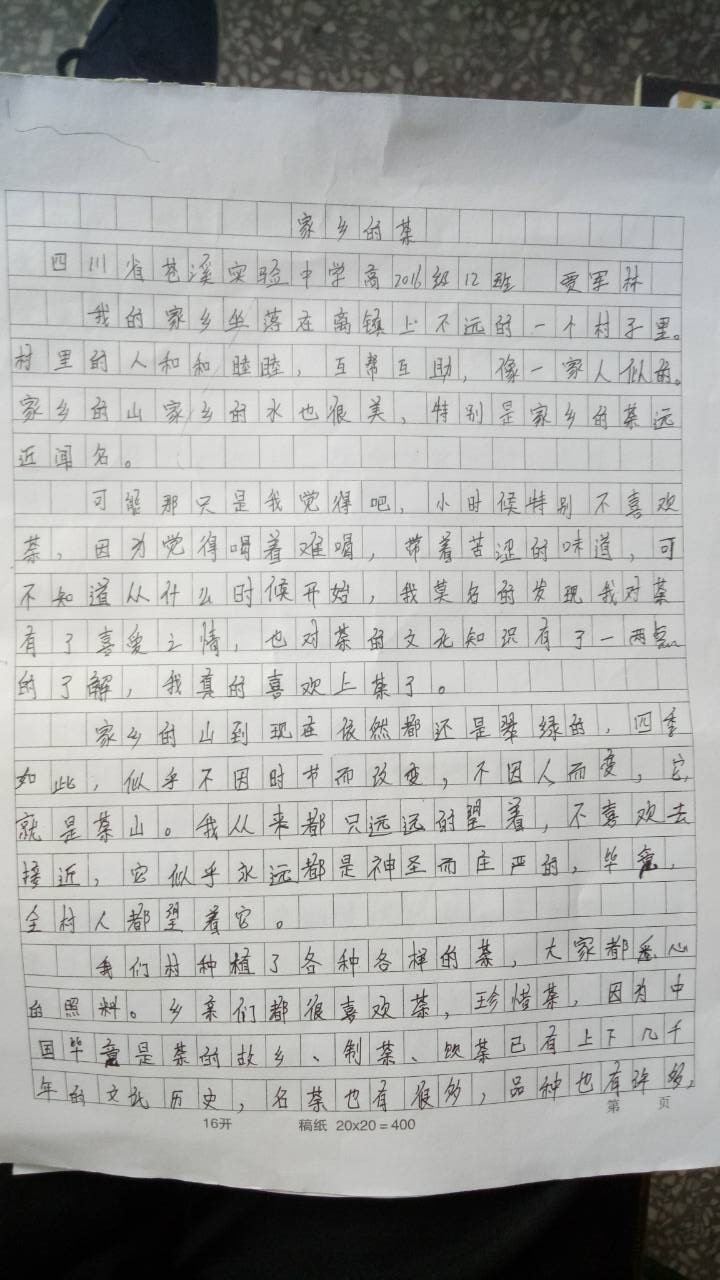 家乡的茶
四川省苍溪实验中学高2016级12班 贾军林
我的家乡坐落在离镇上不远的一个村子里。
村里的人和和睦睦，互帮互助，像一家人似的。
家乡的山家乡的水也很美，特别是家乡的茶远
近闻名。
可能那只是我觉得吧，小时候特别不喜欢
茶，因为觉得喝着难喝，带着苦涩的味道，可
不知道从什么时候开始，我莫名的发现我对茶
有了喜爱之情，也对茶的文化知识有了一两点
的了解，我真的喜欢上茶了。
家乡的山到现在依然都还是翠绿的，四季
如此，似乎不因时节而改变，不因人而变，它
就是茶山。我从来都只远远的望着，不喜欢去
接近，它似乎永远都是神圣而庄严的，毕竟，
全村人都望着它。
我们村种植了各种各样的茶，大家都悉心
的照料。乡亲们都很喜欢茶，珍惜茶，因为中
国毕竟是茶的故乡、制茶、饮茶已有上下几千
年的文化历史，名茶也有很多，品种也有许多，
16开 稿纸 20x20=400 第 页